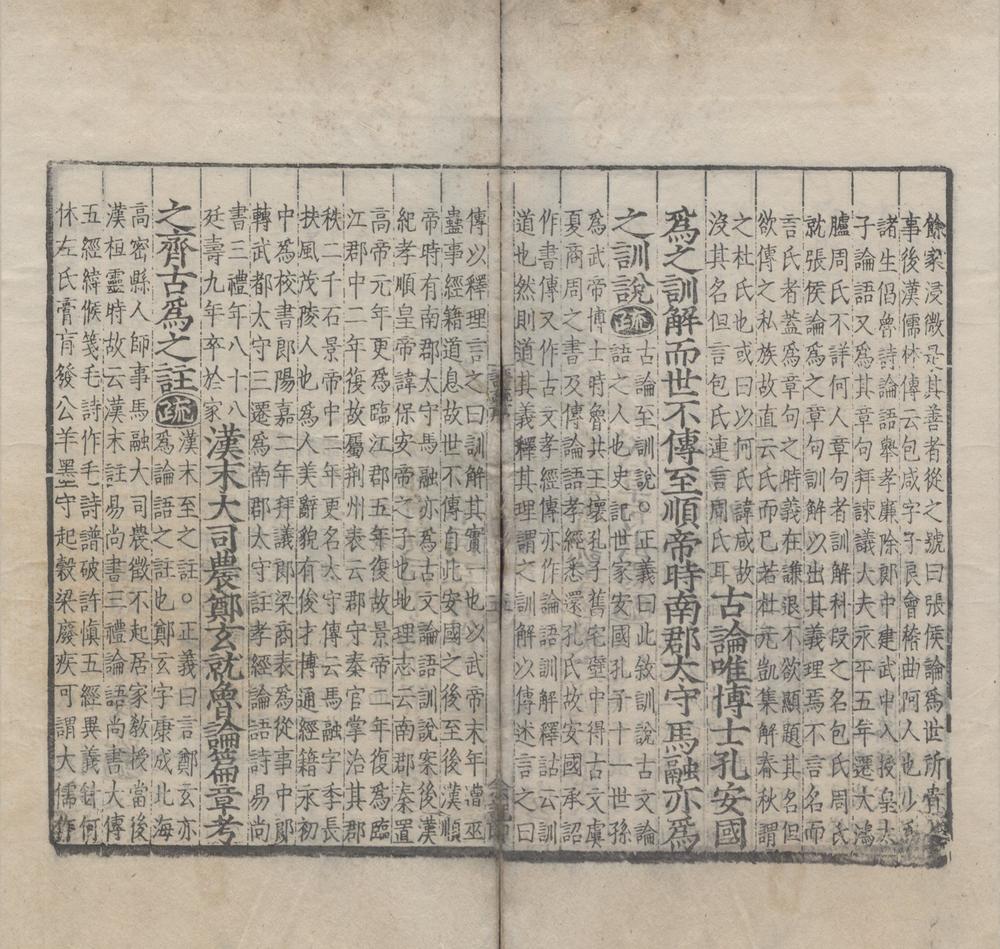 餘家浸微是其善者從之號曰張侯論爲世所貴
事後漢儒林傳云包咸字子良會稽曲阿人也少爲
諸生倡魯詩論語舉孝廉除郎中建武中入授皇太
子論語又爲其章句拜諫議大夫永平五年遷大鴻
臚周氏不詳何人章句者訓解科段之名包氏周氏
就張侯論爲之章句訓解以出其義理焉不言名而
言氏者蓋爲章句之時義在謙退不欲顯題其名但
欲傳之私族故直云氏而已若杜元凱集解春秋謂
之杜氏也或曰以何氏諱咸故
沒其名但言包氏連言周氏耳
古論唯博士孔安國
爲之訓解而世不傳至順帝時南郡太守馬融亦爲
之訓說
疏
古論至訓說。正義曰此敘訓說古文論
語之人也史記世家安國孔子十一世孫
爲武帝博士時魯共王壞孔子舊宅壁中得古文虞
夏商周之書及傳論語孝經悉還孔氏故安國承詔
作書傳又作古文孝經傳亦作論語訓解釋詁云訓
道也然則道其義釋其理謂之訓解以傳述言之曰
傳以釋理言之曰訓解其實一也以武帝末年遭巫
蠱事經籍道息故世不傳自此安國之後至後漢順
帝時有南郡太守馬融亦爲古文論語訓說案後漢
紀孝順皇帝諱保安帝之子也地理志云南郡秦置
高帝元年更爲臨江郡五年復故景帝二年復爲臨
江郡中二年復故屬荆州表云郡守秦官掌治其郡
秩二千石景帝中二年更名太守傳云馬融字季長
扶風茂陵人也爲人美辭貌有俊才博通經籍永初
中爲校書郎陽嘉二年拜議郎梁商表爲從事中郎
轉武都太守三遷爲南郡太守註孝經論語詩易尚
書三禮年八十八
延壽九年卒於家
漢末大司農鄭玄就魯論篇章考
之齊古爲之註
疏
漢末至之註。正義曰言鄭玄亦
爲論語之註也鄭玄字康成北海
高密縣人師事馬融大司農徵不起居家教授當後
漢桓靈時故云漢末註易尚書三禮論語尚書大傳
五經緯候箋毛詩作毛詩譜破許愼五經異義針何
休左氏膏肓發公羊墨守起穀梁廢疾可謂大儒作